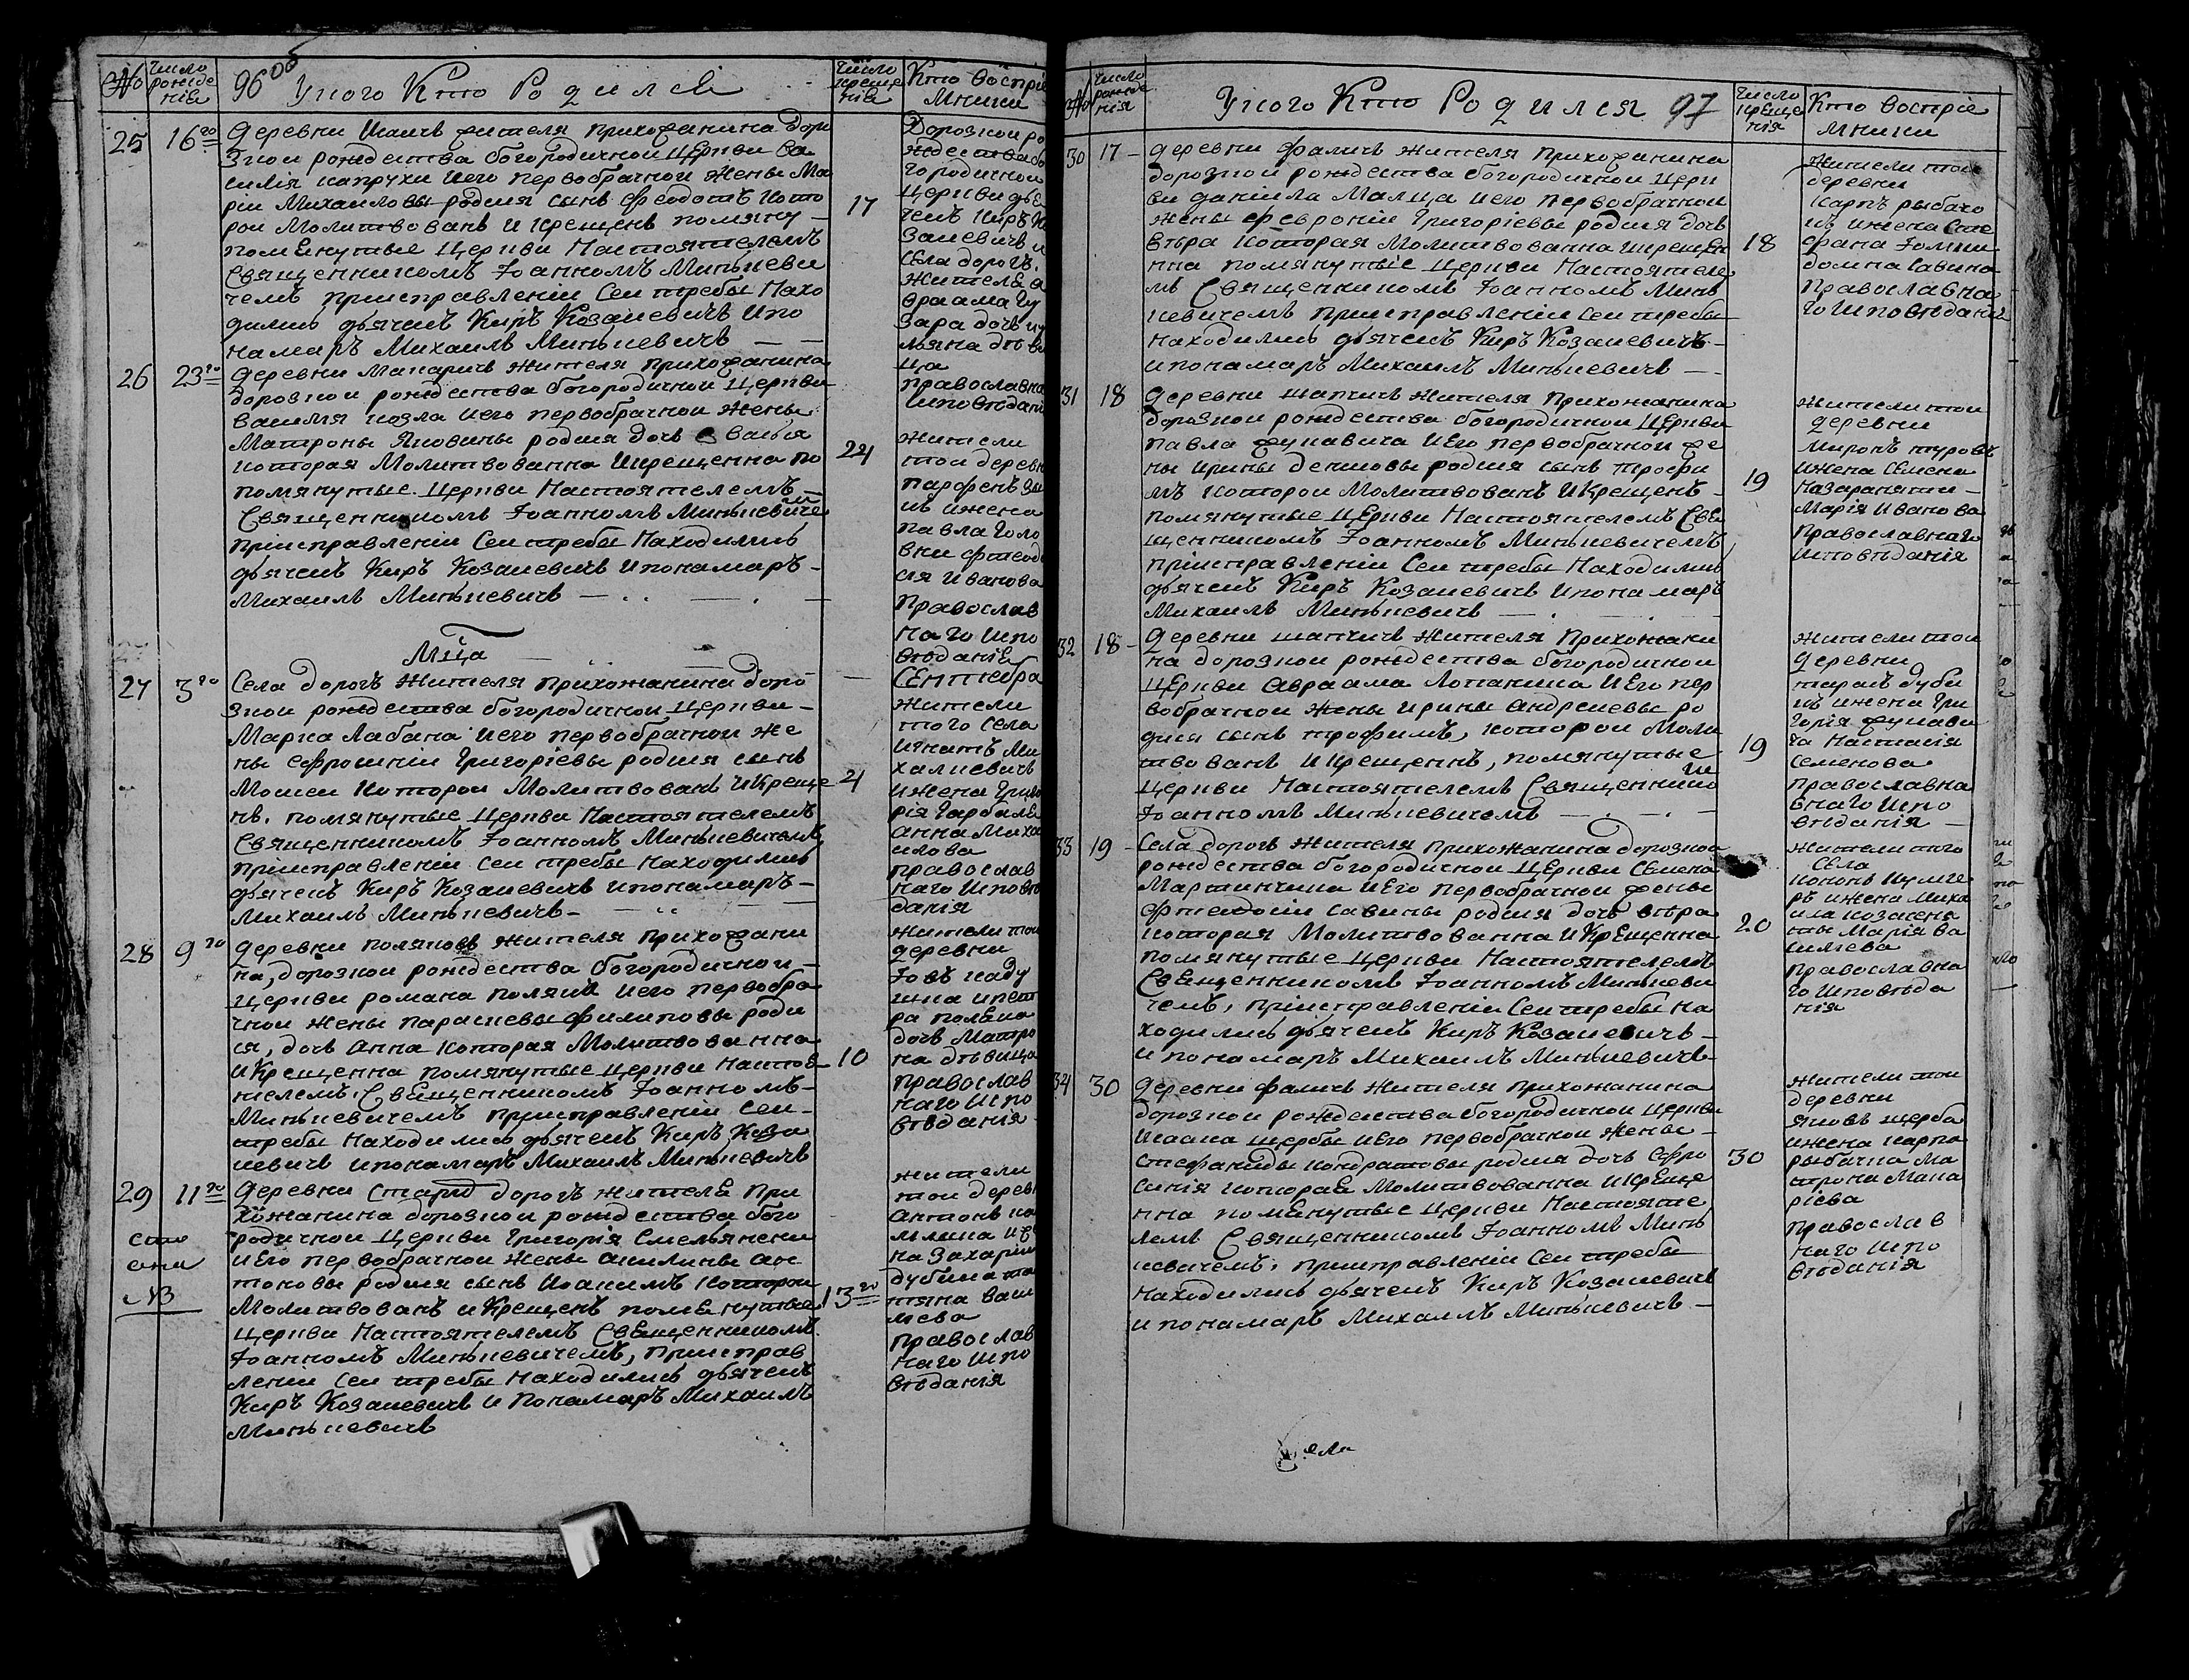 №
число рожде нія
96об
Укого Кто Родился
число креще нія
Кто воспріе
мники
25
16го
деревни
жителя прихожанина доро
знои рождества богородичнои церкви ва
силія капрухи иего первобрачнои жены Ма
ріи Михаиловы родился сынъ Феодотъ кото
рои Молитвованъ и крещенъ помяну
поменутые церкви Настоятелемъ
Священникомъ Іоанномъ Минькеви
чемъ приисправленіи сеи требы Нахо
дились дьячекъ Киръ Козакевичъ ипо
намаръ Михаилъ Минькевичъ
17
Дорознои ро
ждества бо
городичнои
церкви дья
чекъ Киръ Ко
закевичъ и
села дорогъ
жителя а
враама
зара дочь
льяна дѣви
ца
православна
исповѣдані
26
23го
деревни жителя прихожанина
дорознои рождества богородичнои церкви
василия козла иего первобрачнои жены
Матроны Яковины родися дочь
которая Молитвованна икрещенна по
помянутые церкви Настоятелемъ
Священникомъ Іоанномъ Минькевиче
пріисправленіи сеи требы Находились
дьячекъ Киръ Козакевичъ ипонамаръ
Михаилъ Минькевичъ
24
жители
тои деревн
парфенъ
ижена
павла голо
вки феодо
сія иванова
православ
наго испо
вѣданія
Мца
Сентября
27
3го
Села дорогъ жителя прихожанина доро
знои рождества богородичнои церкви
Марка Лабана иего первобрачнои же
ны ефросиніи Григоріевы родися сынъ
Моисеи которои Молитвованъ икреще
нъ. помянутые церкви Настоятелемъ
Священникомъ Іоанномъ Минькевичемъ
приисправленіи сеи требы находились
дьячекъ Киръ Козакевичъ ипонамаръ
Михаилъ Минькевичъ
4
жители
того села
игнатъ Ми
халкевичъ
ижена Григо
рія
анна Миха
илова
православ
наго исповѣ
данія
28
9го
деревни поляковъ жителя прихожани
на, дорознои рождества богородичнои
церкви романа поляка иего первобра
чнои жены параскевы филиповы роди
ся, дочь Анна которая Молитвованна
иКрещенна помянутые церкви Настоя
телемъ, Священникомъ Іоанномъ
Минькевичемъ приисправленіи сеи
требы находились дьячекъ Киръ Коза
кевичъ ипонамаръ Михаилъ Минькевичъ
10
жители тои
деревни
пет
ра поляка
дочь Матро
на дѣвица
православ
наго испо
вѣданія
29
11го
деревни Стари дорогъ жителя при
хожанина дорознои рождества бого
родичнои церкви Григорія Емельянски
иего первобрачнои жены акилины ан
тоновы родися сынъ Иоакимъ которои
Молитвованъ и Крещенъ поменутые
церкви Настоятелемъ Священникомъ
Іоанномъ Минькевичемъ, приисправ
леніи сеи требы находились дьячекъ
Киръ Козакевичъ и Понамаръ Михаилъ
Минькевичъ
NB
13го
жители
тои дерев
антонъ
на захаріи
дубика та
тяна васи
лева
православ
наго испо
вѣданія
№
число рожде нія
Укого Кто Родился
97
число креще нія
Кто воспріе
мники
30
17
деревни фаличъ жителя прихожанина
дорознои рождества богородичнои церк
ви даніила Малца иего первобрачнои
жены февроніи Григоріевы родися дочь
вѣра которая Молитвованна икрещен
нна помянутыіе церкви Настоятеле
мъ Священникомъ Іоанномъ Минь
кевичемъ приисправленіи сеи требы
находились дьячекъ Киръ Козакевичъ
ипонамаръ Михаилъ Минькевичъ
18
жители тои
деревни
карпъ рыбачо
къ ижена сте
фана
домна савина
православна
го исповѣданія
31
18
деревни шапчичъ жителя прихожанина
дорознои рождества богородичнои церкви
павла иего первобрачнои же
ны ирины денисовы родися сынъ трофи
мъ которои Молитвованъ иКрещенъ
помянутые церкви Настоятелемъ Свя
щенникомъ Іоанномъ Минькевичемъ
пріисправленіи сеи требы Находились
дьячекъ Киръ Козакевичъ ипонамаръ
Михаилъ Минькевичъ
19
жители тои
деревни
миронъ туровъ
ижена семена
Марія иванова
православнаго
исповѣданія
32
18
деревни шапчичъ жителя прихожани
на дорознои рождества богородичнои
церкви авраама Лопакина иего пер
вобрачнои жены ирины андреевы ро
дися сынъ трофимъ, которои Моли
твованъ икрещеннъ, помянутые
церкви Настоятелемъ Священнико
Іоанномъ Минькевичемъ
19
жители тои
деревни
тарасъ дуби
къ ижена гри
горія
Настасія
семенова
православна
внаго испо
вѣданія
33
19
Села дорогъ жителя прихожанина дорознои
рождества богородичнои церкви семена
Мартинчика иего первобрачнои жены
фтеодосіи савины родися дочь вѣра
которая Молитвованна иКрещенна
помянутые церкви Настоятелемъ
Священникомъ Іоанномъ Минькеви
чемъ, пріисправленіи сеи требы на
ходились дьячекъ Киръ Козакевичъ
и понамаръ Михаилъ Минькевичъ
20
жители того
села
кононъ
ръ ижена миха
ила
Марія ва
силева
православна
го исповѣда
нія
34
30
деревни фаличъ жителя прихожанина
дорознои рождества богородичнои церкви
исаака щербы иего первобрачнои жены
стефаниды кондратовы родися дочь ефро
синія которая Молитвованна икреще
нна поменутые церкви Настояте
лемъ Священникомъ Іоанномъ Минь
кевичемъ, приисправленіи сеи требы
находились дьячекъ Киръ Козакевичъ
ипонамаръ Михаилъ Минькевичъ
30
жители тои
деревни
яковъ щерба
ижена карпа
рыбачка ма
трона мака
ріева
православ
наго испо
вѣданія